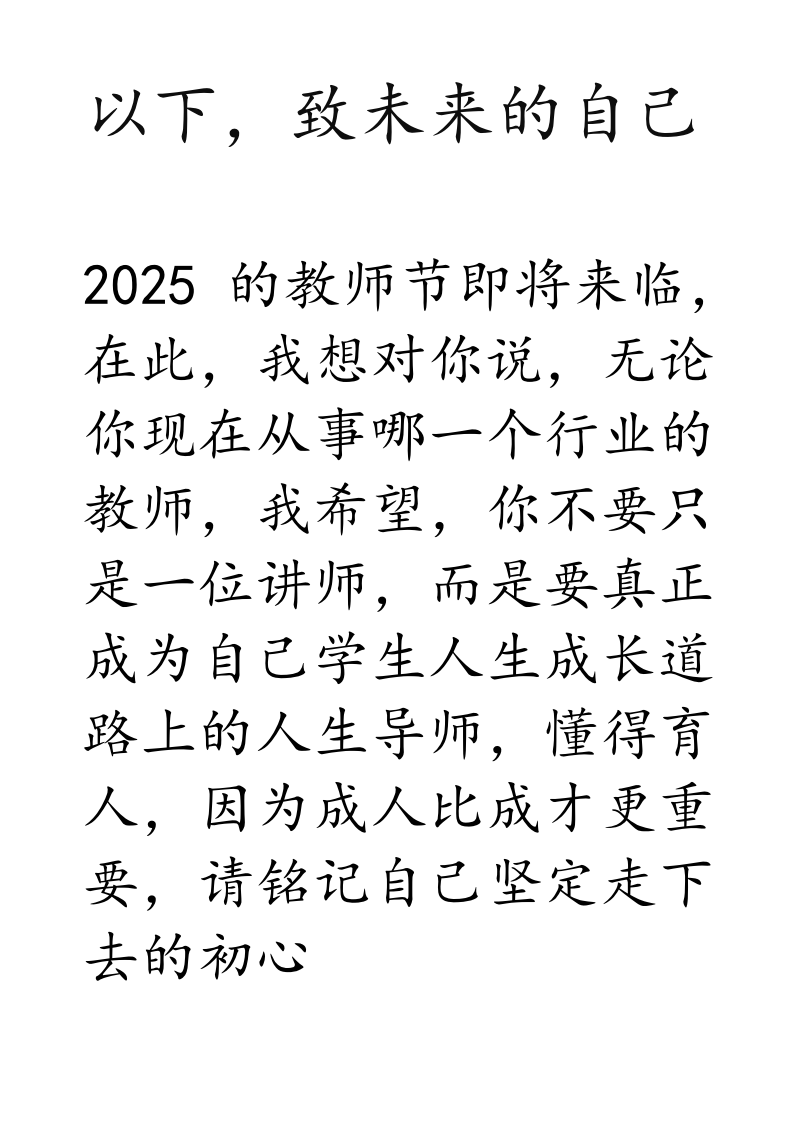 以下，致未来的自己
2025 的教师节即将来临，
在此，我想对你说，无论
你现在从事哪一个行业的
教师，我希望，你不要只
是一位讲师，而是要真正
成为自己学生人生成长道
路上的人生导师，懂得育
人，因为成人比成才更重
要，请铭记自己坚定走下
去的初心